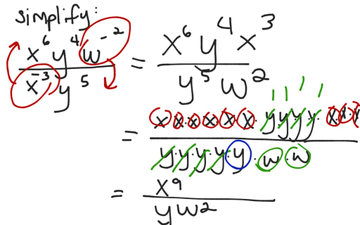 simplify:
x⁶ y⁴ w⁻² / x⁻³ y⁵ = x⁶ y⁴ x³ / y⁵ w²
= x·x·x·x·x·x·y·y·y·y·x·x·x / y·y·y·y·y·w·w
= x⁹ / yw²